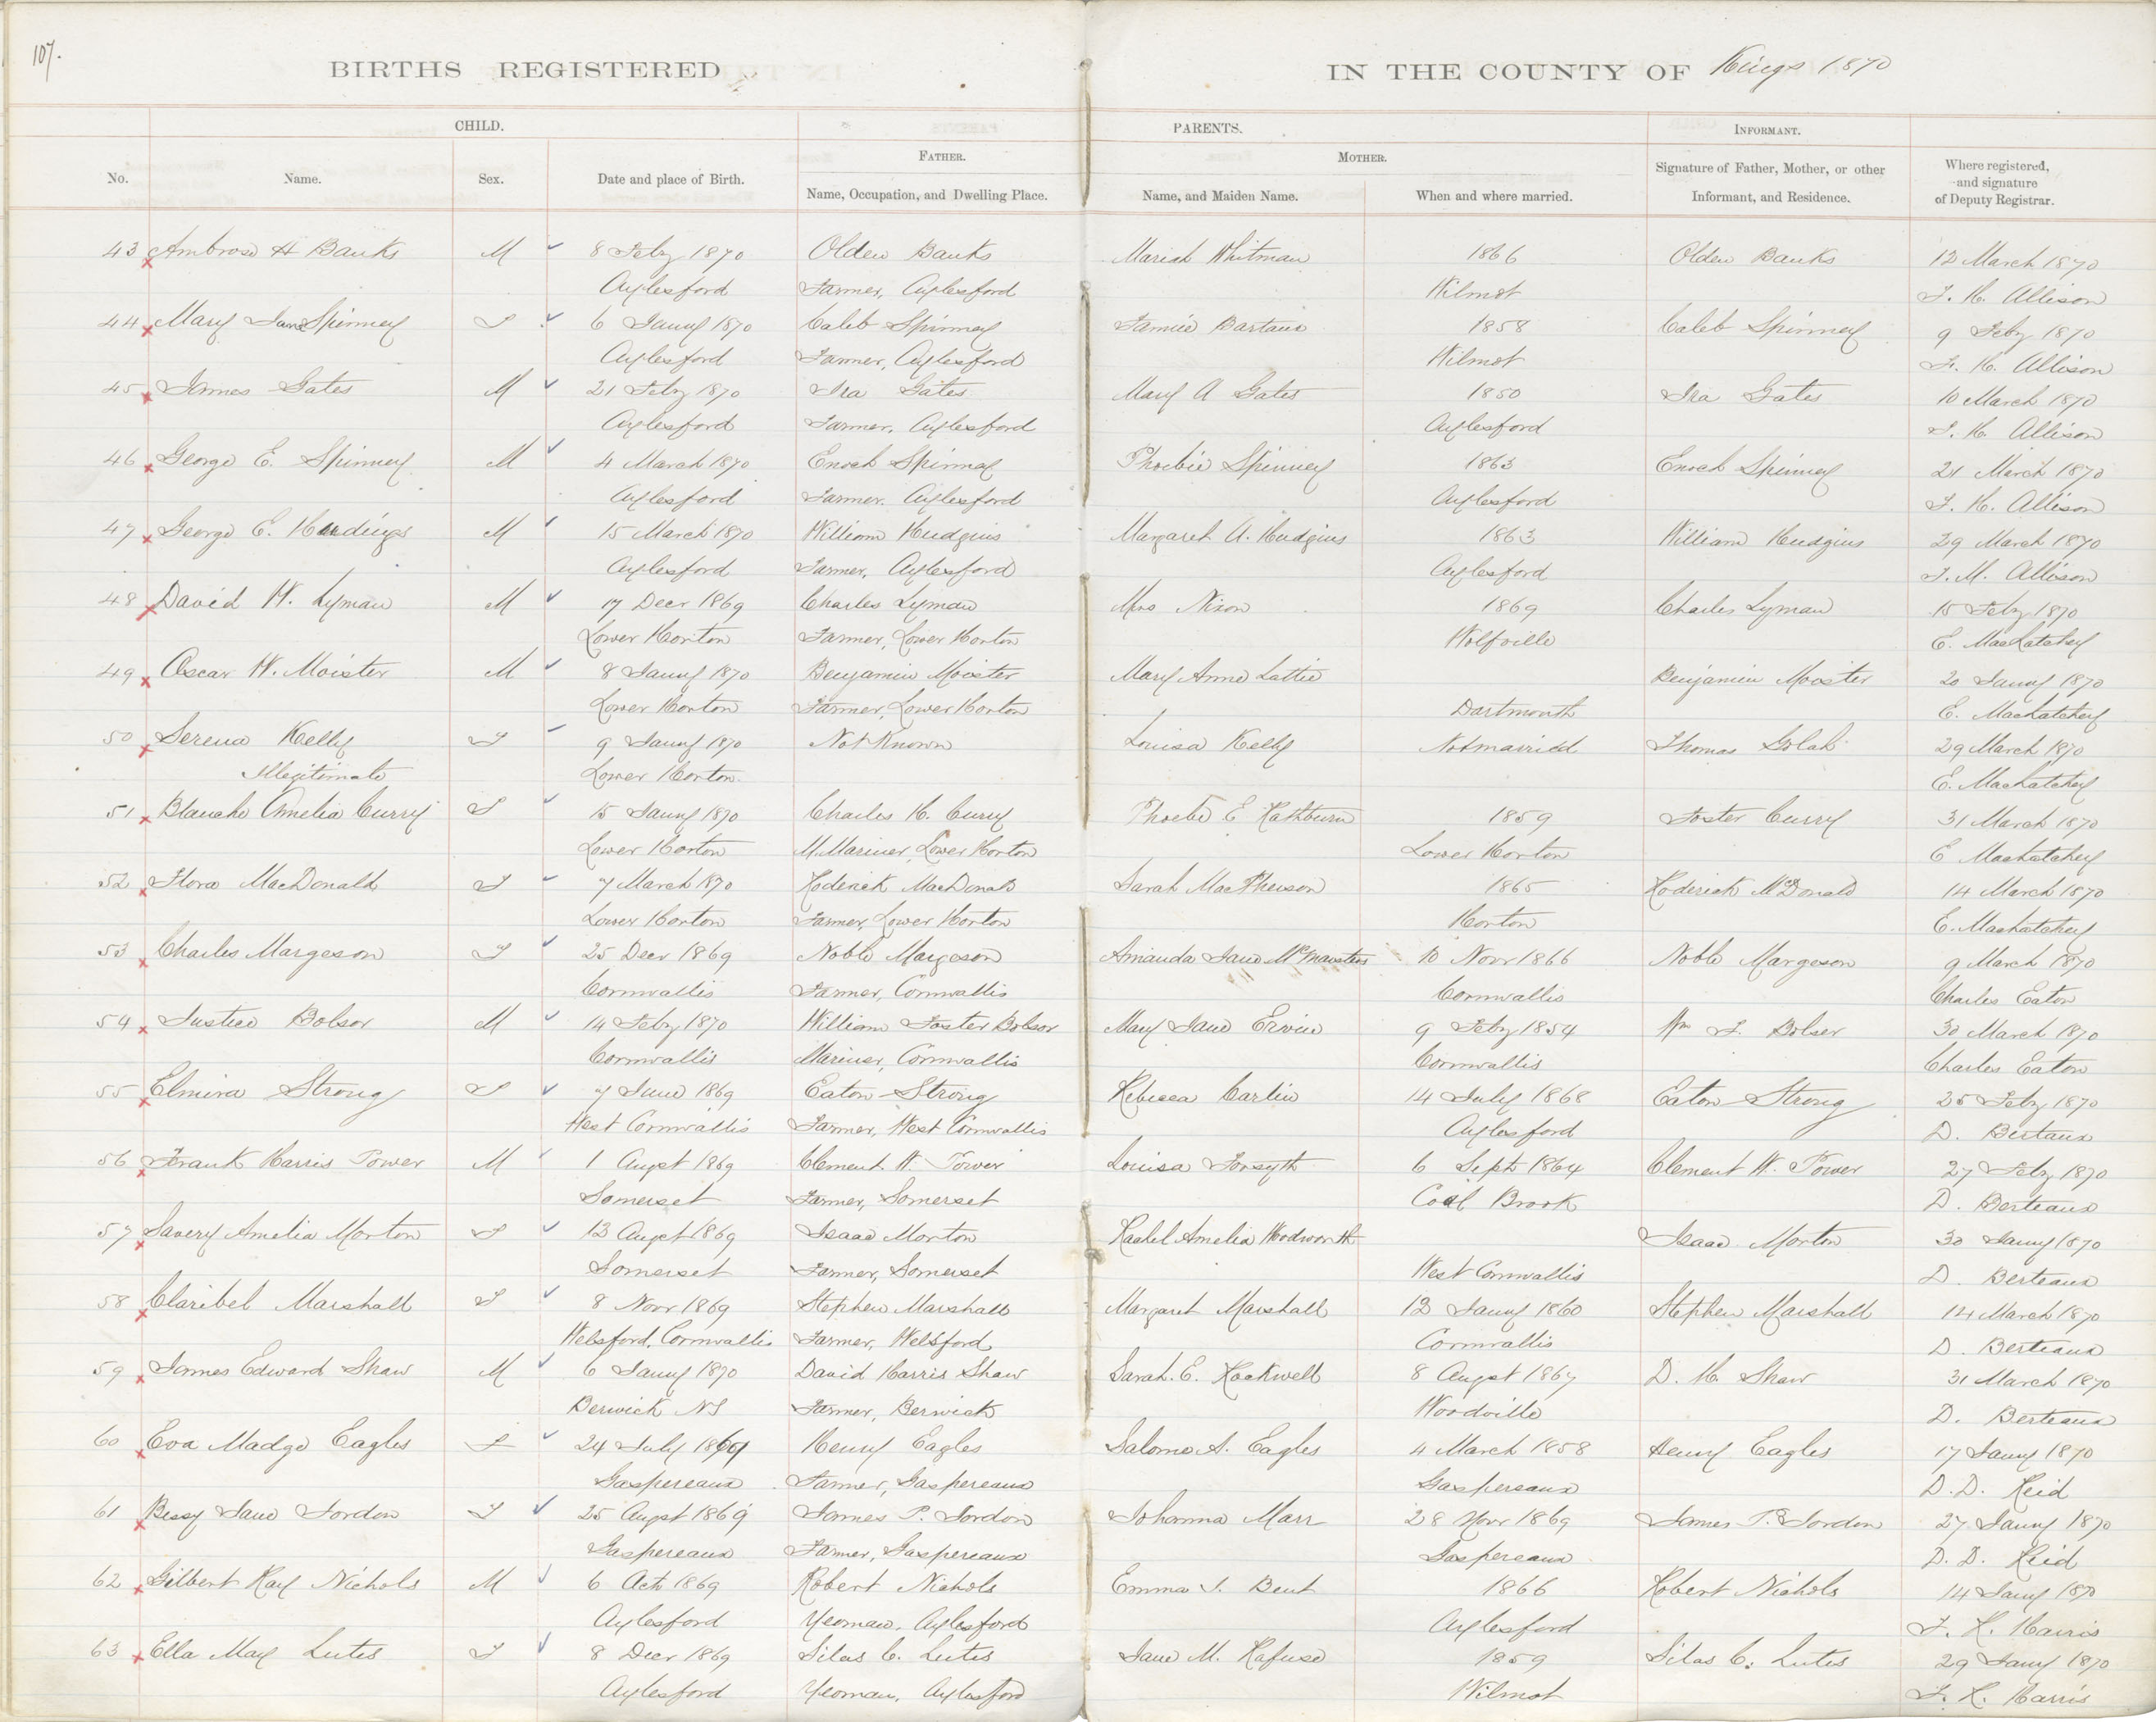 107.
BIRTHS REGISTERED IN THE COUNTY OF Kings 1870
CHILD. PARENTS. INFORMANT.
FATHER. MOTHER.
No. Name. Sex. Date and place of Birth. Name, Occupation, and Dwelling Place. Name, and Maiden Name. When and where married. Signature of Father, Mother, or other Informant, and Residence. Where registered, and signature of Deputy Registrar.
43 Ambrose H Banks M 8 Feby 1870 Olden Banks Mariah Whitman 1866 Olden Banks 12 March 1870
Aylesford Farmer, Aylesford Wilmot F. H. Allison
44 Mary Jane Spinney F 6 Jany 1870 Caleb Spinney 1858 Caleb Spinney 9 Feby 1870
Aylesford Farmer, Aylesford Wilmot F. H. Allison
45 James Gates M 21 Feby 1870 Ira Gates Mary A Gates 1850 Ira Gates 10 March 1870
Aylesford Farmer, Aylesford Aylesford F. H. Allison
46 George E. Spinney M 4 March 1870 Enoch Spinney Phoebie Spinney 1863 Enoch Spinney 21 March 1870
Aylesford Farmer. Aylesford Aylesford F. H. Allison
47 George E. M 15 March 1870 William Hudgins Margaret A. Hudgins 1863 William Hudgins 29 March 1870
Aylesford Farmer, Aylesford Aylesford F. H. Allison
48 David W. Lyman M 17 Decr 1869 Charles Lyman Mrs Nixon 1869 Charles Lyman 15 Feby 1870
Lower Horton Farmer, Lower Horton Wolfville E. MacLatchey
49 Oscar W. Moister M 8 Jany 1870 Benjamin Moister Mary Anne Lattie Benjamin Moister 20 Jany 1870
Lower Horton Farmer, Lower Horton Dartmouth E. MacLatchey
50 Serena Kelly F 9 Jany 1870 Not Known Louisa Kelly Not married Thomas 29 March 1870
Illegitimate Lower Horton. E. MacLatchey
51 Blanche Amelia Curry F 15 Jany 1870 Charles H. Curry Phoebe E Rathburn 1859 Foster Curry 31 March 1870
Lower Horton M. Mariner, Lower Horton Lower Horton E MacLatchey
52 Flora MacDonald F 7 March 1870 Roderick MacDonald Sarah MacPherson 1865 Roderick McDonald 14 March 1870
Lower Horton Farmer, Lower Horton Horton E. MacLatchey
53 Charles Margeson F 25 Decr 1869 Noble Margeson Amanda Jane McMasters 10 Novr 1866 Noble Margeson 9 March 1870
Cornwallis Farmer, Cornwallis Cornwallis Charles Eaton
54 Justice Bolsor M 14 Feby 1870 William Foster Bolsor Mary Jane Ervin 9 Feby 1854 Wm F. Bolser 30 March 1870
Cornwallis Mariner, Cornwallis Cornwallis Charles Eaton
55 Elmira Strong F 7 June 1869 Eaton Strong Rebecca Carlin 14 July 1868 Eaton Strong 25 Feby 1870
West Cornwallis Farmer, West Cornwallis Aylesford D. Bertaux
56 Frank Harris Power M 1 Augst 1869 Clement W. Power Louisa Forsyth 6 Sept 1864 Clement W. Power 27 Feby 1870
Somerset Farmer, Somerset Coal Brook D. Berteaux
57 Savery Amelia Morton F 13 Augst 1869 Isaac Morton Rachel Amelia Wodworth Isaac Morton 30 Jany 1870
Somerset Farmer, Somerset West Cornwallis D. Berteaux
58 Claribel Marshall F 8 Novr 1869 Stephen Marshall Margaret Marshall 12 Jany 1860 Stephen Marshall 14 March 1870
Welsford, Cornwallis Farmer, Welsford Cornwallis D. Berteaux
59 James Edward Shaw M 6 Jany 1870 David Harris Shaw Sarah. E. Rockwell 8 Augst 1867 D. H. Shaw 31 March 1870
Berwick NS Farmer, Berwick Woodville D. Berteaux
60 Eva Madge Eagles F 24 July 1869 Henry Eagles Salome A. Eagles 4 March 1858 Henry Eagles 17 Jany 1870
Gaspereaux Farmer, Gaspereaux Gaspereaux D. D. Reid
61 Bessy Jane Jordon F 25 Augst 1869 James P. Jordon Johanna Marr 28 Novr 1869 James P. Jordon 27 Jany 1870
Gaspereaux Farmer, Gaspereaux Gaspereaux D. D. Reid
62 Gilbert Ray Nichols M 6 Octr 1869 Robert Nichols Emma J. Bent 1866 Robert Nichols 14 Jany 1870
Aylesford Yeoman, Aylesford Aylesford F. H. Harris
63 Ella May Lutes F 8 Decr 1869 Silas C. Lutes Jane M. Rafuse 1859 Silas C. Lutes 29 Jany 1870
Aylesford Yeoman, Aylesford Wilmot F. H. Harris